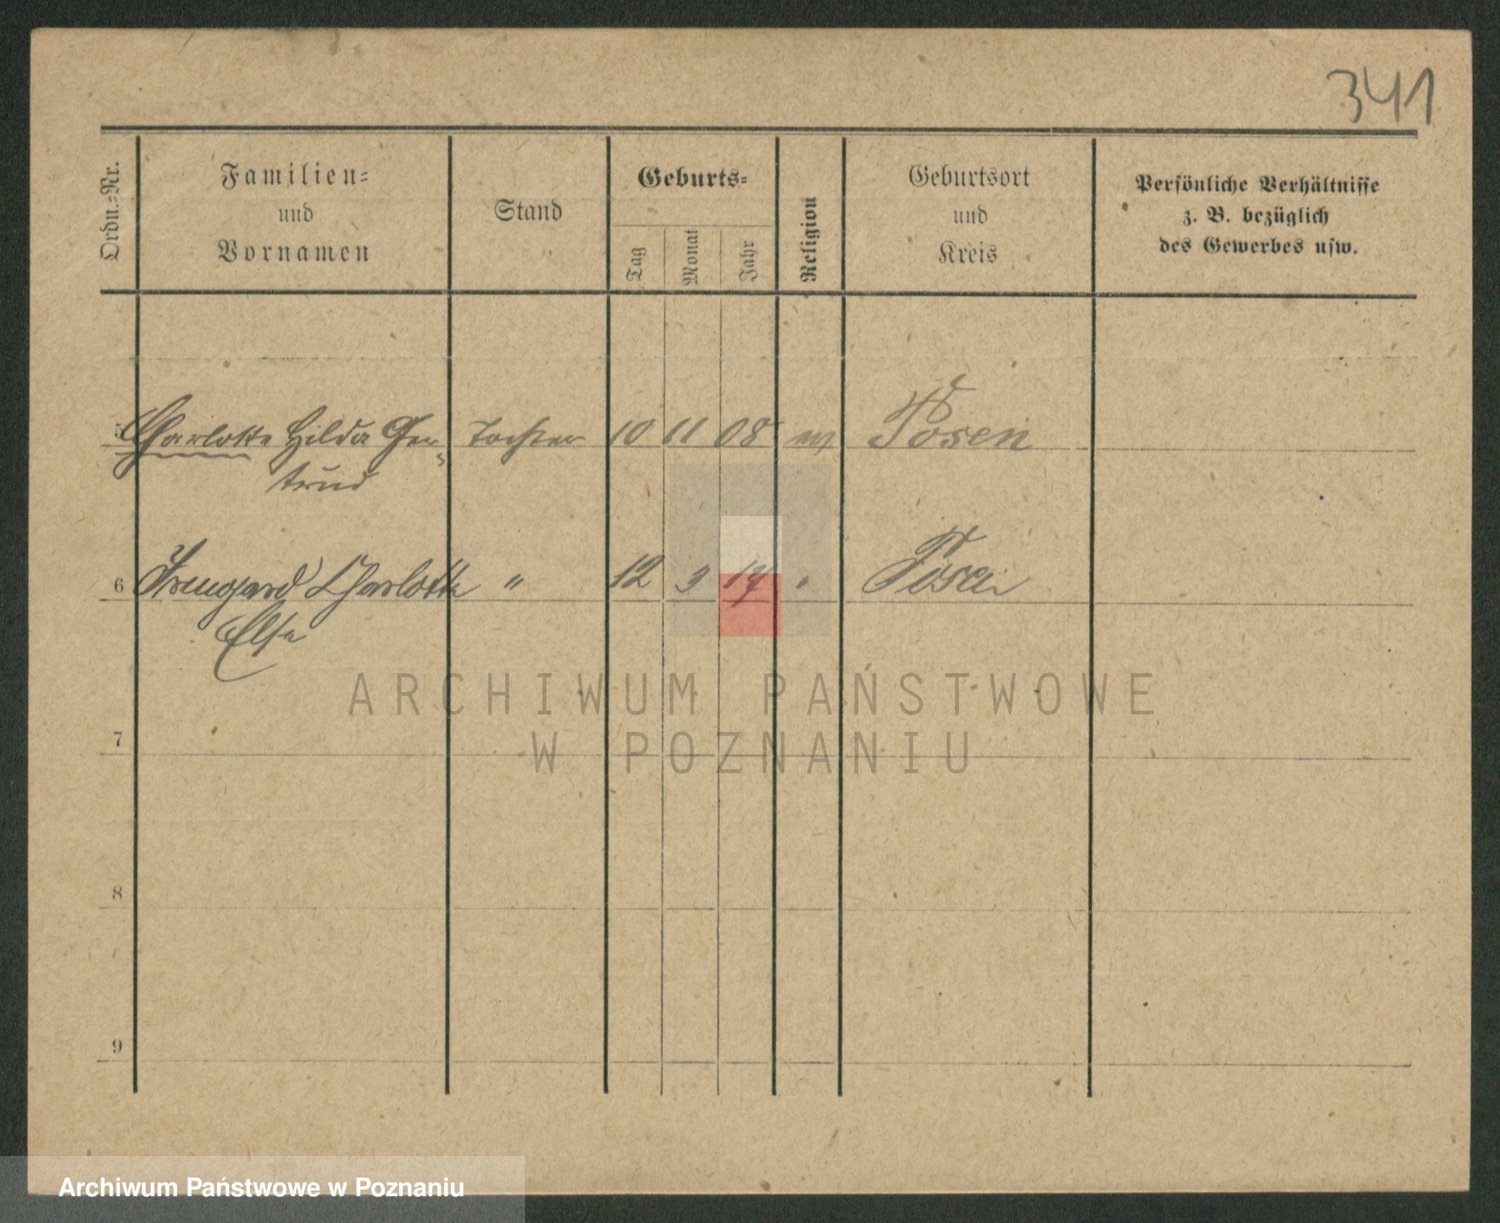 341
Ordn.-Nr.
Familien-
und
Vornamen
Stand
Geburts-
Tag
Monat
Jahr
Religion
Geburtsort
und
Kreis
Persönliche Verhältnisse
z. B. bezüglich
des Gewerbes usw.
5 Charlotte Hilda Ger- Tochter 10 11 08 ev Posen
trud
6 Irmgard Charlotte " 12 9 17 " Posen
Else
ARCHIWUM PAŃSTWOWE
W POZNANIU
7
8
9
Archiwum Państwowe w Poznaniu